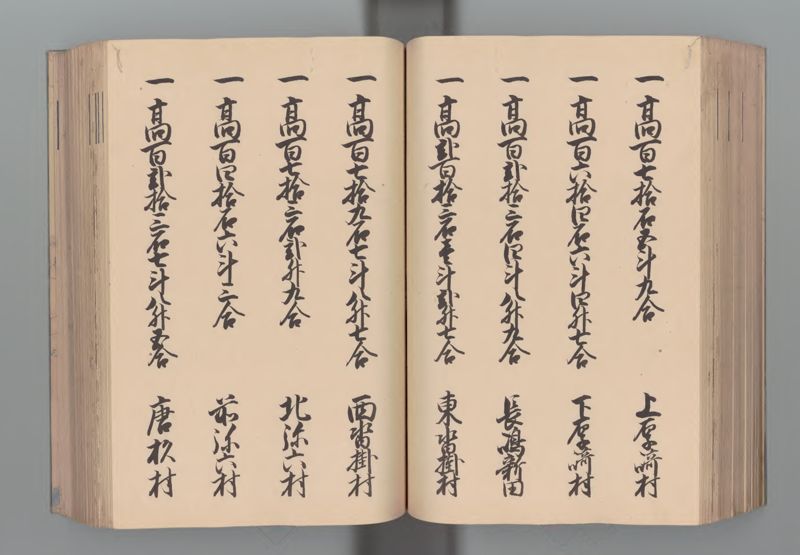 一高百七拾石五斗九合 上厚崎村
一高百六拾四石六斗四升七合 下厚崎村
一高百弐拾三石四斗八升九合 長嶋新田
一高弐百拾三石壱斗弐升七合 東沓掛村
一高百七拾九石七斗八升七合 西沓掛村
一高百七拾三石弐升九合 北弥六村
一高百四拾石六斗二合 前弥六村
一高百弐拾三石七斗八升五合 唐杉村